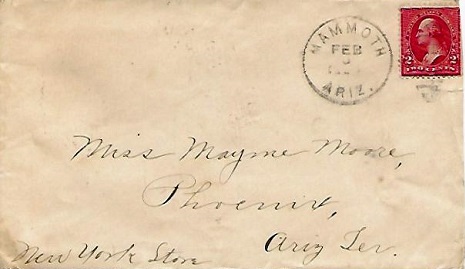 MAMMOTH
FEB
ARIZ.
2 2
TWO CENTS
Miss Mayme Moore,
Phoenix,
Ariz Ter.
New York Store